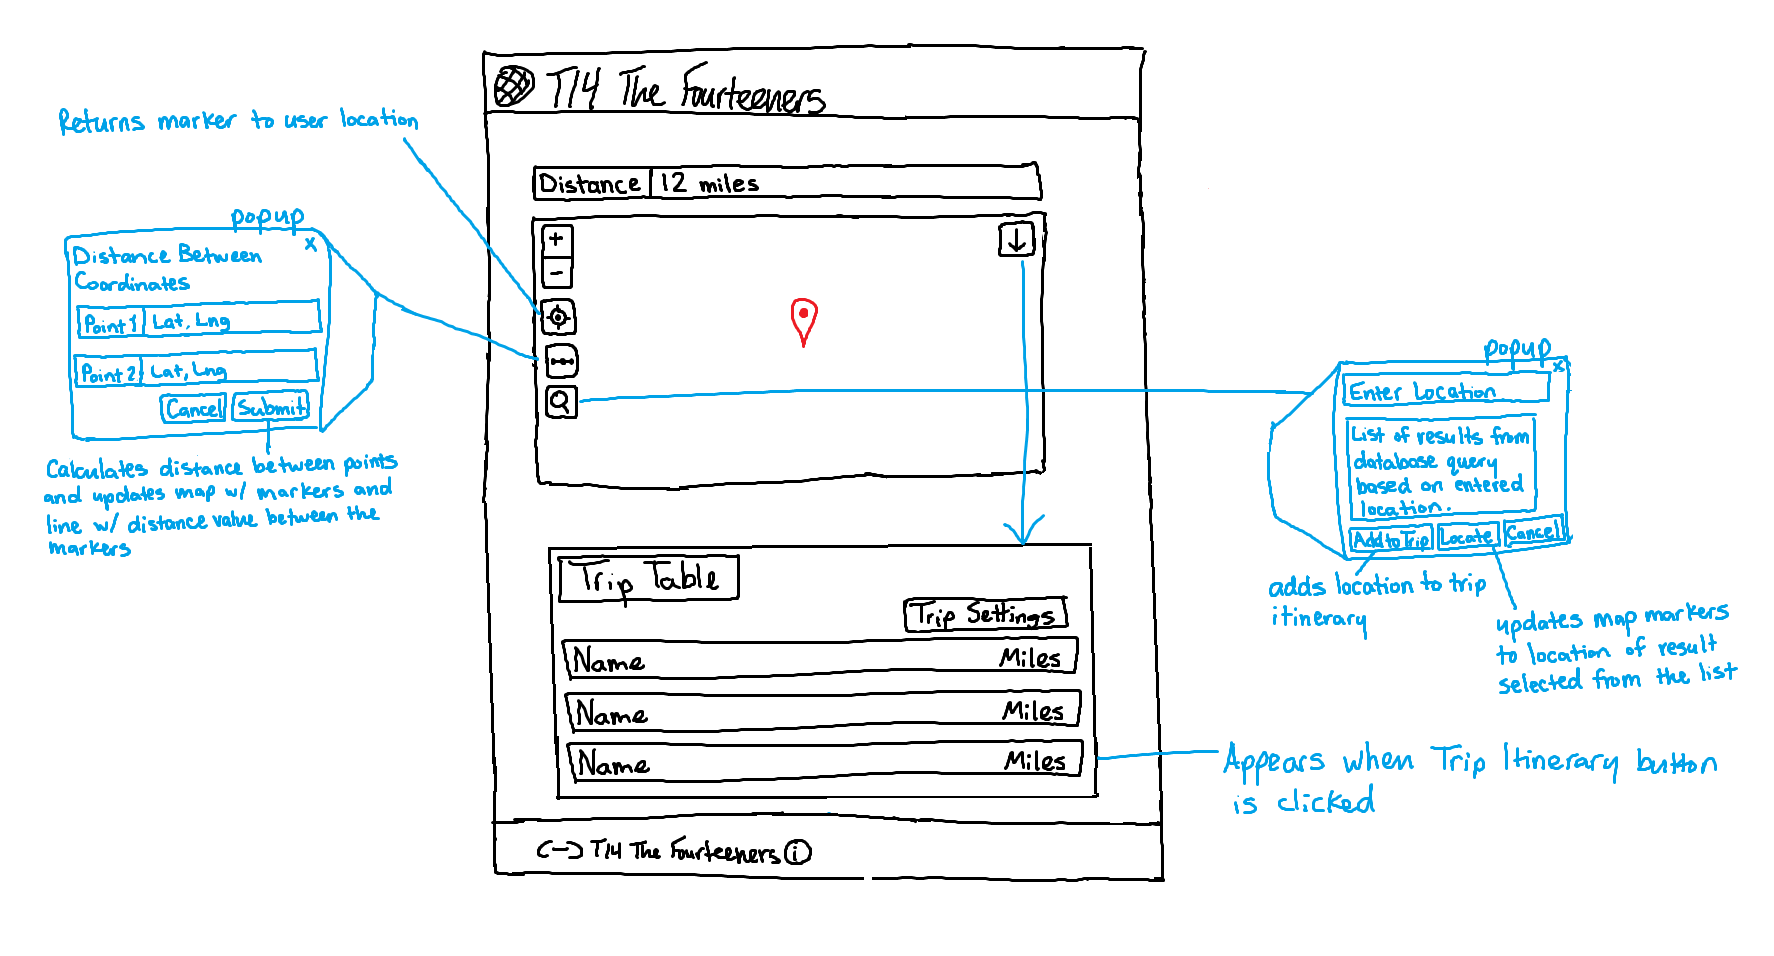 T14 The Fourteeners
Returns marker to user location
Distance 12 miles
popup
x
Distance Between
Coordinates
Point 1 Lat, Lng
Point 2 Lat, Lng
Cancel Submit
Calculates distance between points
and updates map w/ markers and
line w/ distance value between the
markers
+
-
popup
x
Enter Location
List of results from
database query
based on entered
location.
Add to Trip Locate Cancel
adds location to trip
itinerary
updates map markers
to location of result
selected from the list
Trip Table
Trip Settings
Name Miles
Name Miles
Name Miles
Appears when Trip Itinerary button
is clicked
T14 The Fourteeners i